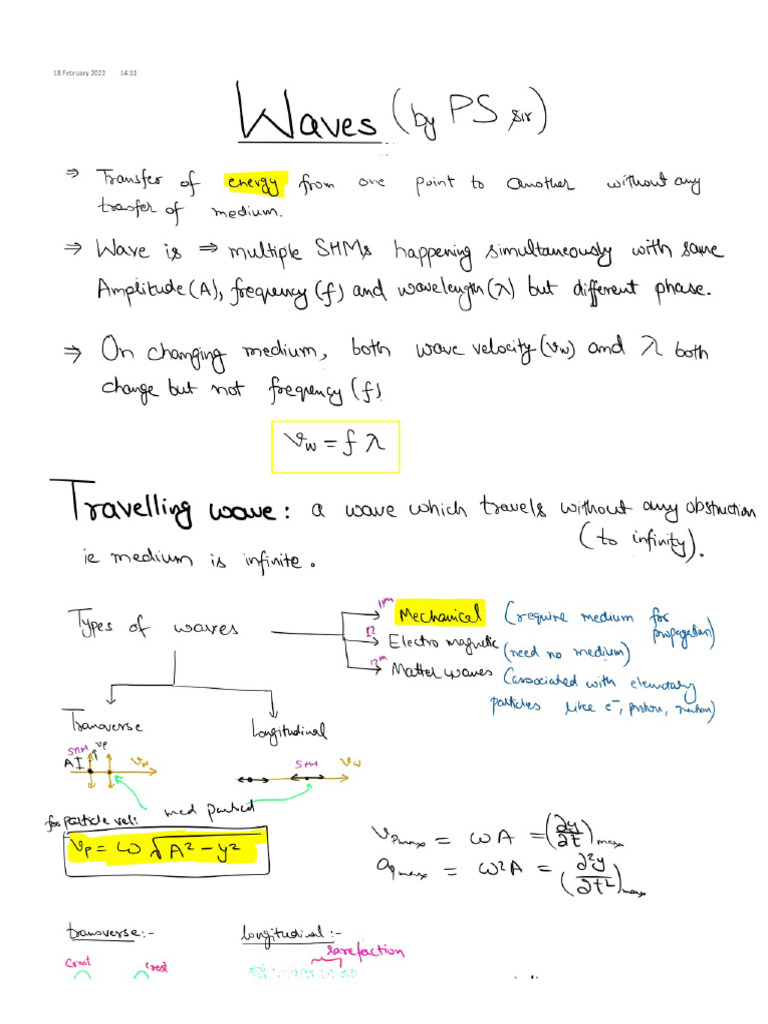 18 February 2022 14:11
Waves (by PS sir)
⇒ Transfer of energy from one point to another without any
transfer of medium.
⇒ Wave is ⇒ multiple SHMs happening simultaneously with same
Amplitude(A), frequency(f) and wavelength(λ) but different phase.
⇒ On changing medium, both wave velocity(vw) and λ both
change but not frequency(f)
vw = f λ
Travelling wave: a wave which travels without any obstruction
(to infinity).
ie medium is infinite.
Types of waves
11th Mechanical (require medium for
propagation)
12 Electro magnetic (need no medium)
12th Matter waves (associated with elemetary
particles like e⁻, proton, neutron)
Transverse
Longitudinal
SHM vp A vw
SHM vw
for particle vel:
vp = ω √A² - y²
vpmax = ωA = (∂y/∂t)max
apmax = ω²A = (∂²y/∂t²)max
transverse:-
longitudinal:-
rarefaction
crest crest